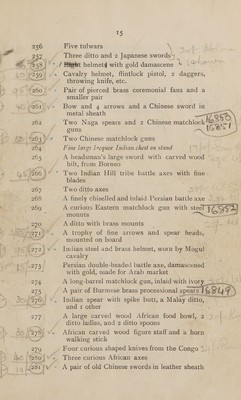 15
236 Five tulwars
237 Three ditto and 2 Japanese swords
258 helmets with gold damascene
259 Cavalry helmet, flintlock pistol, 2 daggers,
throwing knife, etc.
260 Pair of pierced brass ceremonial fans and a
smaller pair
261 Bow and 4 arrows and a Chinese sword in
metal sheath
262 Two Naga spears and 2 Chinese matchlock
guns
16850
16851
263 Two Chinese matchlock guns
264 Fine large lacquer Indian chest on stand
265 A headsman's large sword with carved wood
hilt, from Borneo
266 Two Indian Hill tribe battle axes with fine
blades
267 Two ditto axes
268 A finely chiselled and inlaid Persian battle axe
269 A curious Eastern matchlock gun with steel
mounts
16852
270 A ditto with brass mounts
271 A trophy of fine arrows and spear heads,
mounted on board
272 Indian steel and brass helmet, worn by Mogul
cavalry
273 Persian double-headed battle axe, damascened
with gold, made for Arab market
274 A long-barrel matchlock gun, inlaid with ivory
275 A pair of Burmese brass processional spears
16849
276 Indian spear with spike butt, a Malay ditto,
and 1 other
277 A large carved wood African food bowl, 2
ditto ladles, and 2 ditto spoons
278 African carved wood figure staff and a horn
walking stick
279 Four curious shaped knives from the Congo
280 Three curious African axes
281 A pair of old Chinese swords in leather sheath